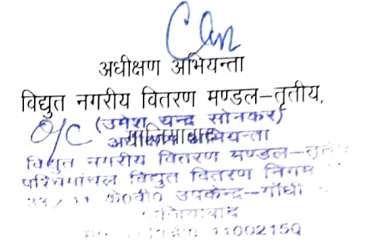 अधीक्षण अभियन्ता
विद्युत नगरीय वितरण मण्डल–तृतीय,
गाजियाबाद
(उमेश चन्द्र सोनकर)
अधीक्षण अभियन्ता
विद्युत नगरीय वितरण मण्डल–तृतीय
पश्चिमांचल विद्युत वितरण निगम
33/11 के०वी० उपकेन्द्र–गाँधी
गाजियाबाद